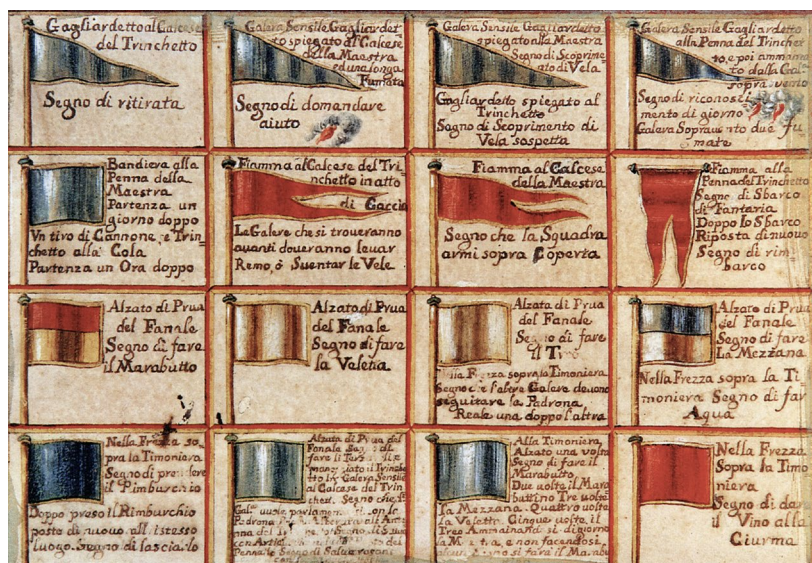 Gagliardetto al Calcese
del Trinchetto
Segno di ritirata
Galera Sensile Gagliardet
to spiegato al Calcese
della Maestra
ed una longa
Fumata
Segno di domandare
aiuto
Galera Sensile Gagliardetto
spiegato alla Maestra
Segno di Scoprime
nto di Vela
Gagliardetto spiegato al
Trinchetto
Segno di Scoprimento di
Vela sospetta
Galera Sensile Gagliardetto
alla Penna del Trinche
to, e poi ammana
to dalla
sopra vento
Segno di riconosci
mento di giorno
Galera Sopravento due fu
mate
Bandiera alla
Penna della
Maestra
Partenza un
giorno doppo
Vn tiro di Cannone, e Trin
chetto alla Cola
Partenza un Ora doppo
Fiamma al Calcese del Tri
nchetto in atto
di Caccia
Le Galere che si troueranno
auanti doueranno leuar
Remo, ò Suentar le Vele
Fiamma al Calcese
della Maestra
Segno che la Squadra
armi sopra Coperta
Fiamma alla
Penna del Trinchetto
Segno di Sbarco
di Fantaria
Doppo lo Sbarco
Riposta di nuouo
Segno di rim
barco
Alzato di Prua
del Fanale
Segno di fare
il Marabutto
Alzato di Prua
del Fanale
Segno di fare
la Veletta
Alzata di Prua
del Fanale
Segno di fare
il
Frezza sopra la Timoniera
Segno che l'altre Galere deuono
seguitare la Padrona
Reale una doppo l'altra
Alzato di Prua
del Fanale
Segno di fare
La Mezzana
Nella Frezza sopra la Ti
moniera Segno di far
Aqua
Nella Frezza so
pra la Timoniera
Segno di prendere
il Rimburchio
Doppo preso il Rimburchio
posto di nuouo all istesso
luogo. Segno di lasciarlo
Alzata di Prua del
Fanale Segno di
fare il
il Trinche
Galera Sensile
al Calcese del Trin
chetto. Segno che
uuole parlamen
Padrona
del
con
Penna lo Segno di
Alla Timoniera,
Alzato una volta
Segno di fare il
Marabutto
Due uolte il Mara
battino Tre uolte
la Mezzana. Quattro uolte
la Veletta. Cinque uolte il
Treo Ammainando si di giorno
e non facendosi
si farà il Marabu
Nella Frezza
Sopra la Timo
niera
Segno di dar
il Vino alla
Ciurma